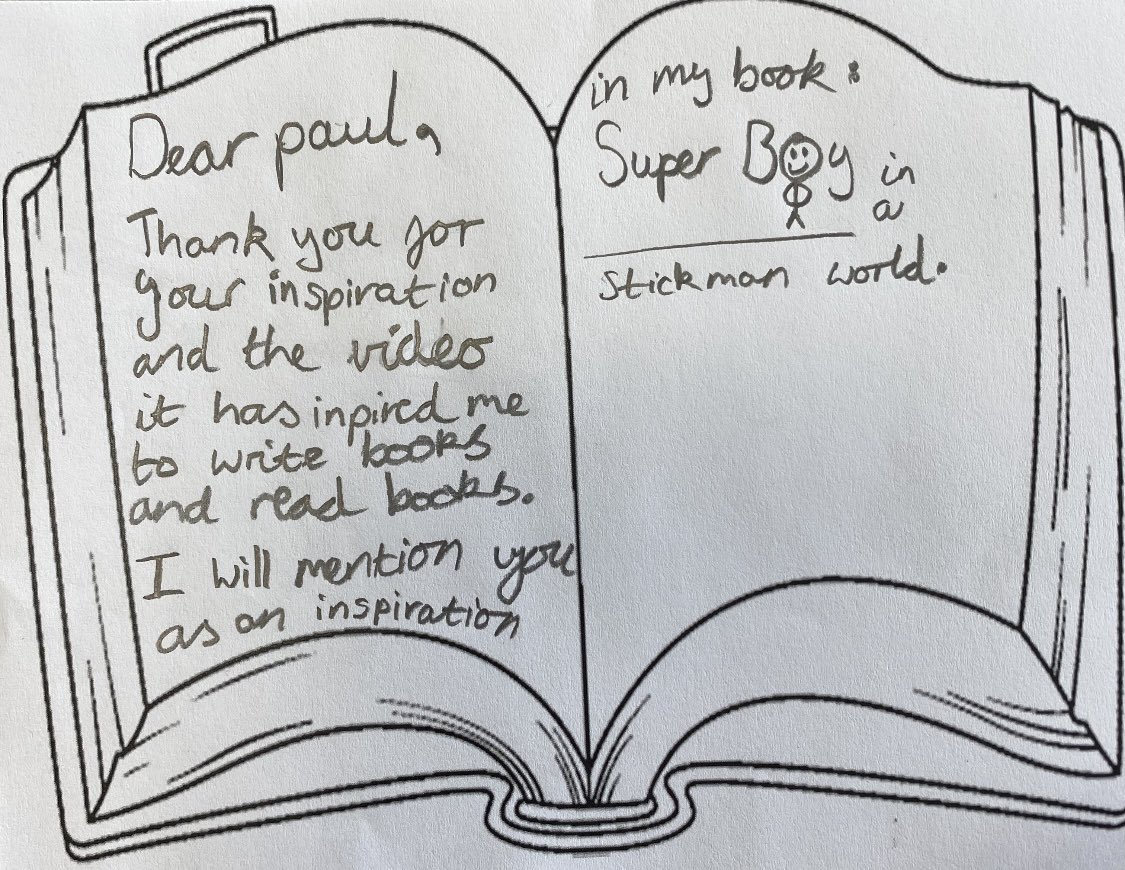 Dear paul,
Thank you for
your inspiration
and the video
it has inpired me
to write books
and read books.
I will mention you
as an inspiration
in my book:
Super Boy in
a
stickman world.